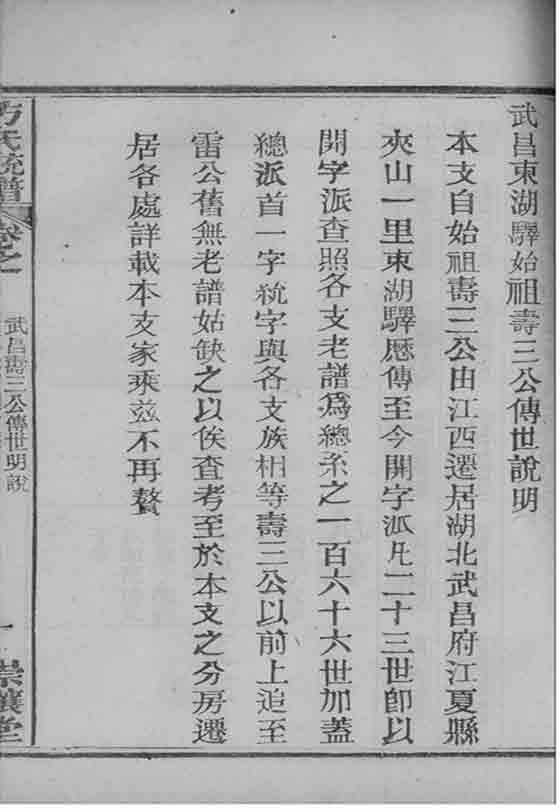 武昌東湖驛始祖壽三公傳世說明
本支自始祖壽三公由江西遷居湖北武昌府江夏縣
夾山一里東湖驛歷傳至今開字派凡二十三世卽以
開字派查照各支老譜爲總系之一百六十六世加蓋
總派首一字統字與各支族相等壽三公以前上追至
雷公舊無老譜姑缺之以俟查考至於本支之分房遷
居各處詳載本支家乘茲不再贅
方氏統譜
卷之一
武昌壽三公傳世明說
一
堂